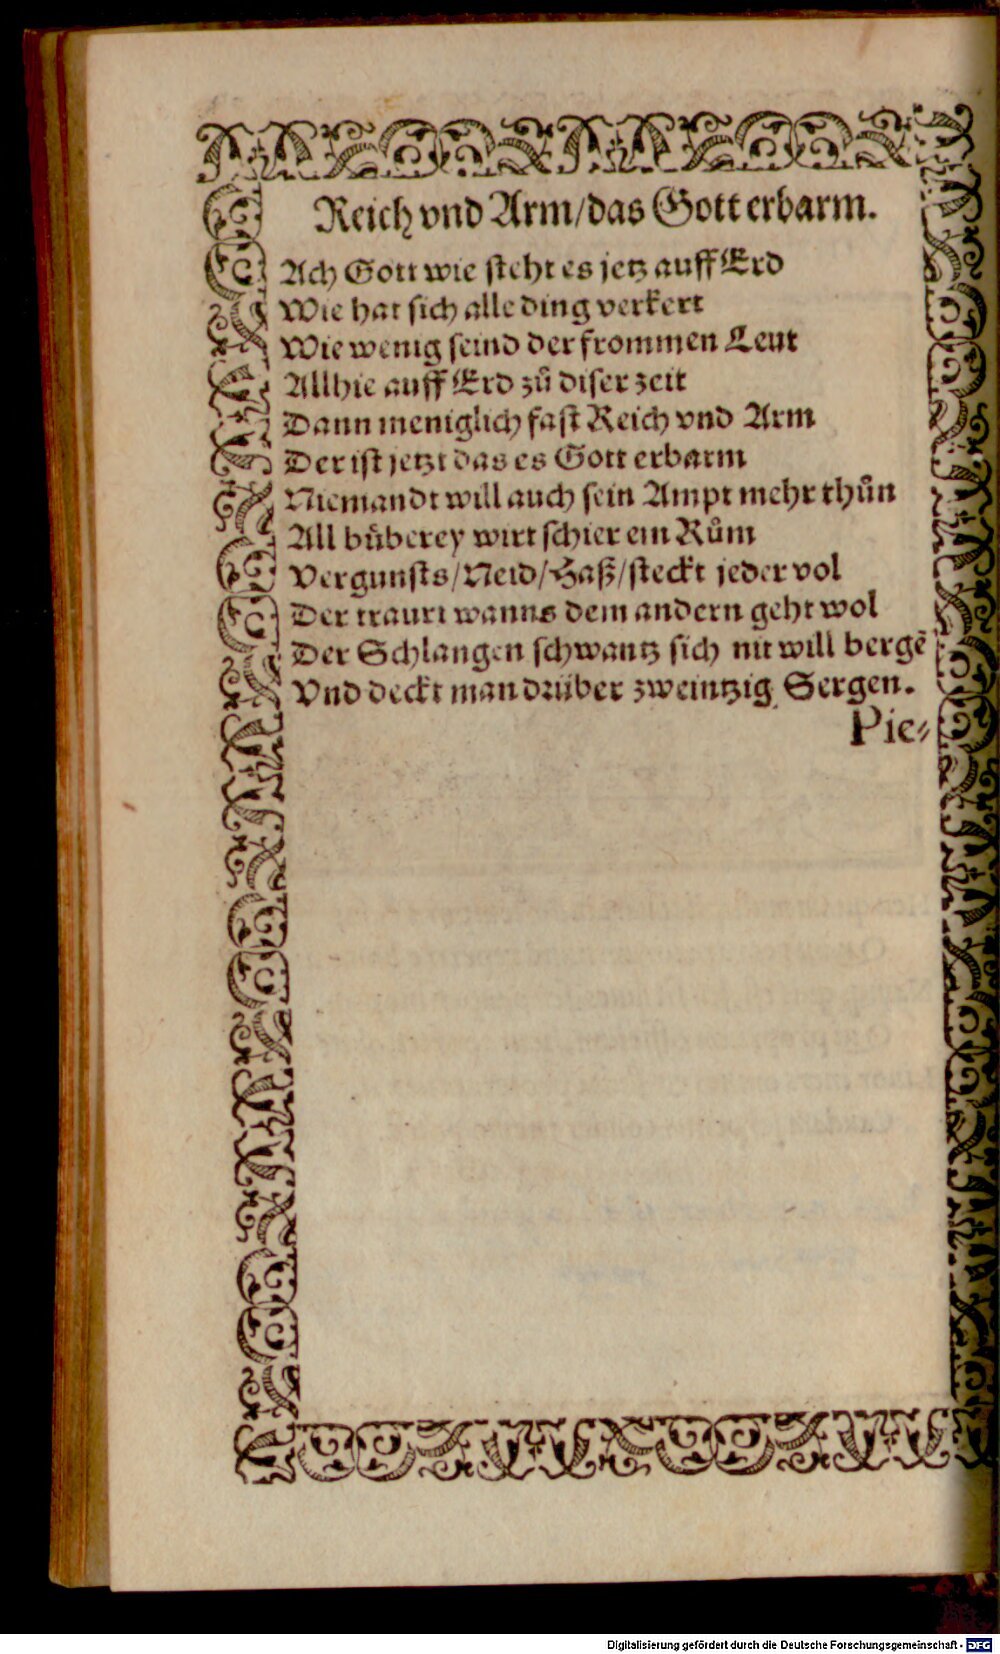 Reich vnd Arm/das Gott erbarm.
Ach Gott wie steht es jetz auff Erd
Wie hat sich alle ding verkert
Wie wenig seind der frommen Leut
Allhie auff Erd zů diser zeit
Dann meniglich fast Reich vnd Arm
Der ist jetzt das es Gott erbarm
Niemandt will auch sein Ampt mehr thůn
All bůberey wirt schier ein Rům
Vergunsts/Neid/Haß/steckt jeder vol
Der traurt wanns dem andern geht wol
Der Schlangen schwantz sich nit will bergẽ
Vnd deckt man drüber zweintzig Sergen.
Pie-
Digitalisierung gefördert durch die Deutsche Forschungsgemeinschaft - DFG